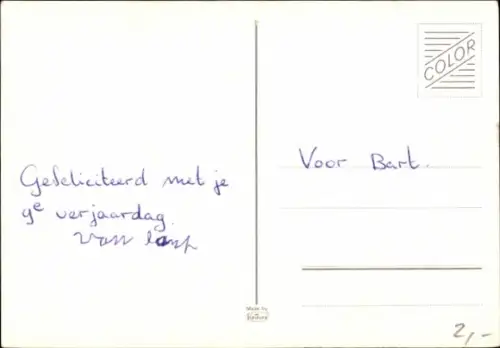 COLOR
Gefeliciteerd met je
9e verjaardag.
Van
Voor Bart.
Made by
2,-